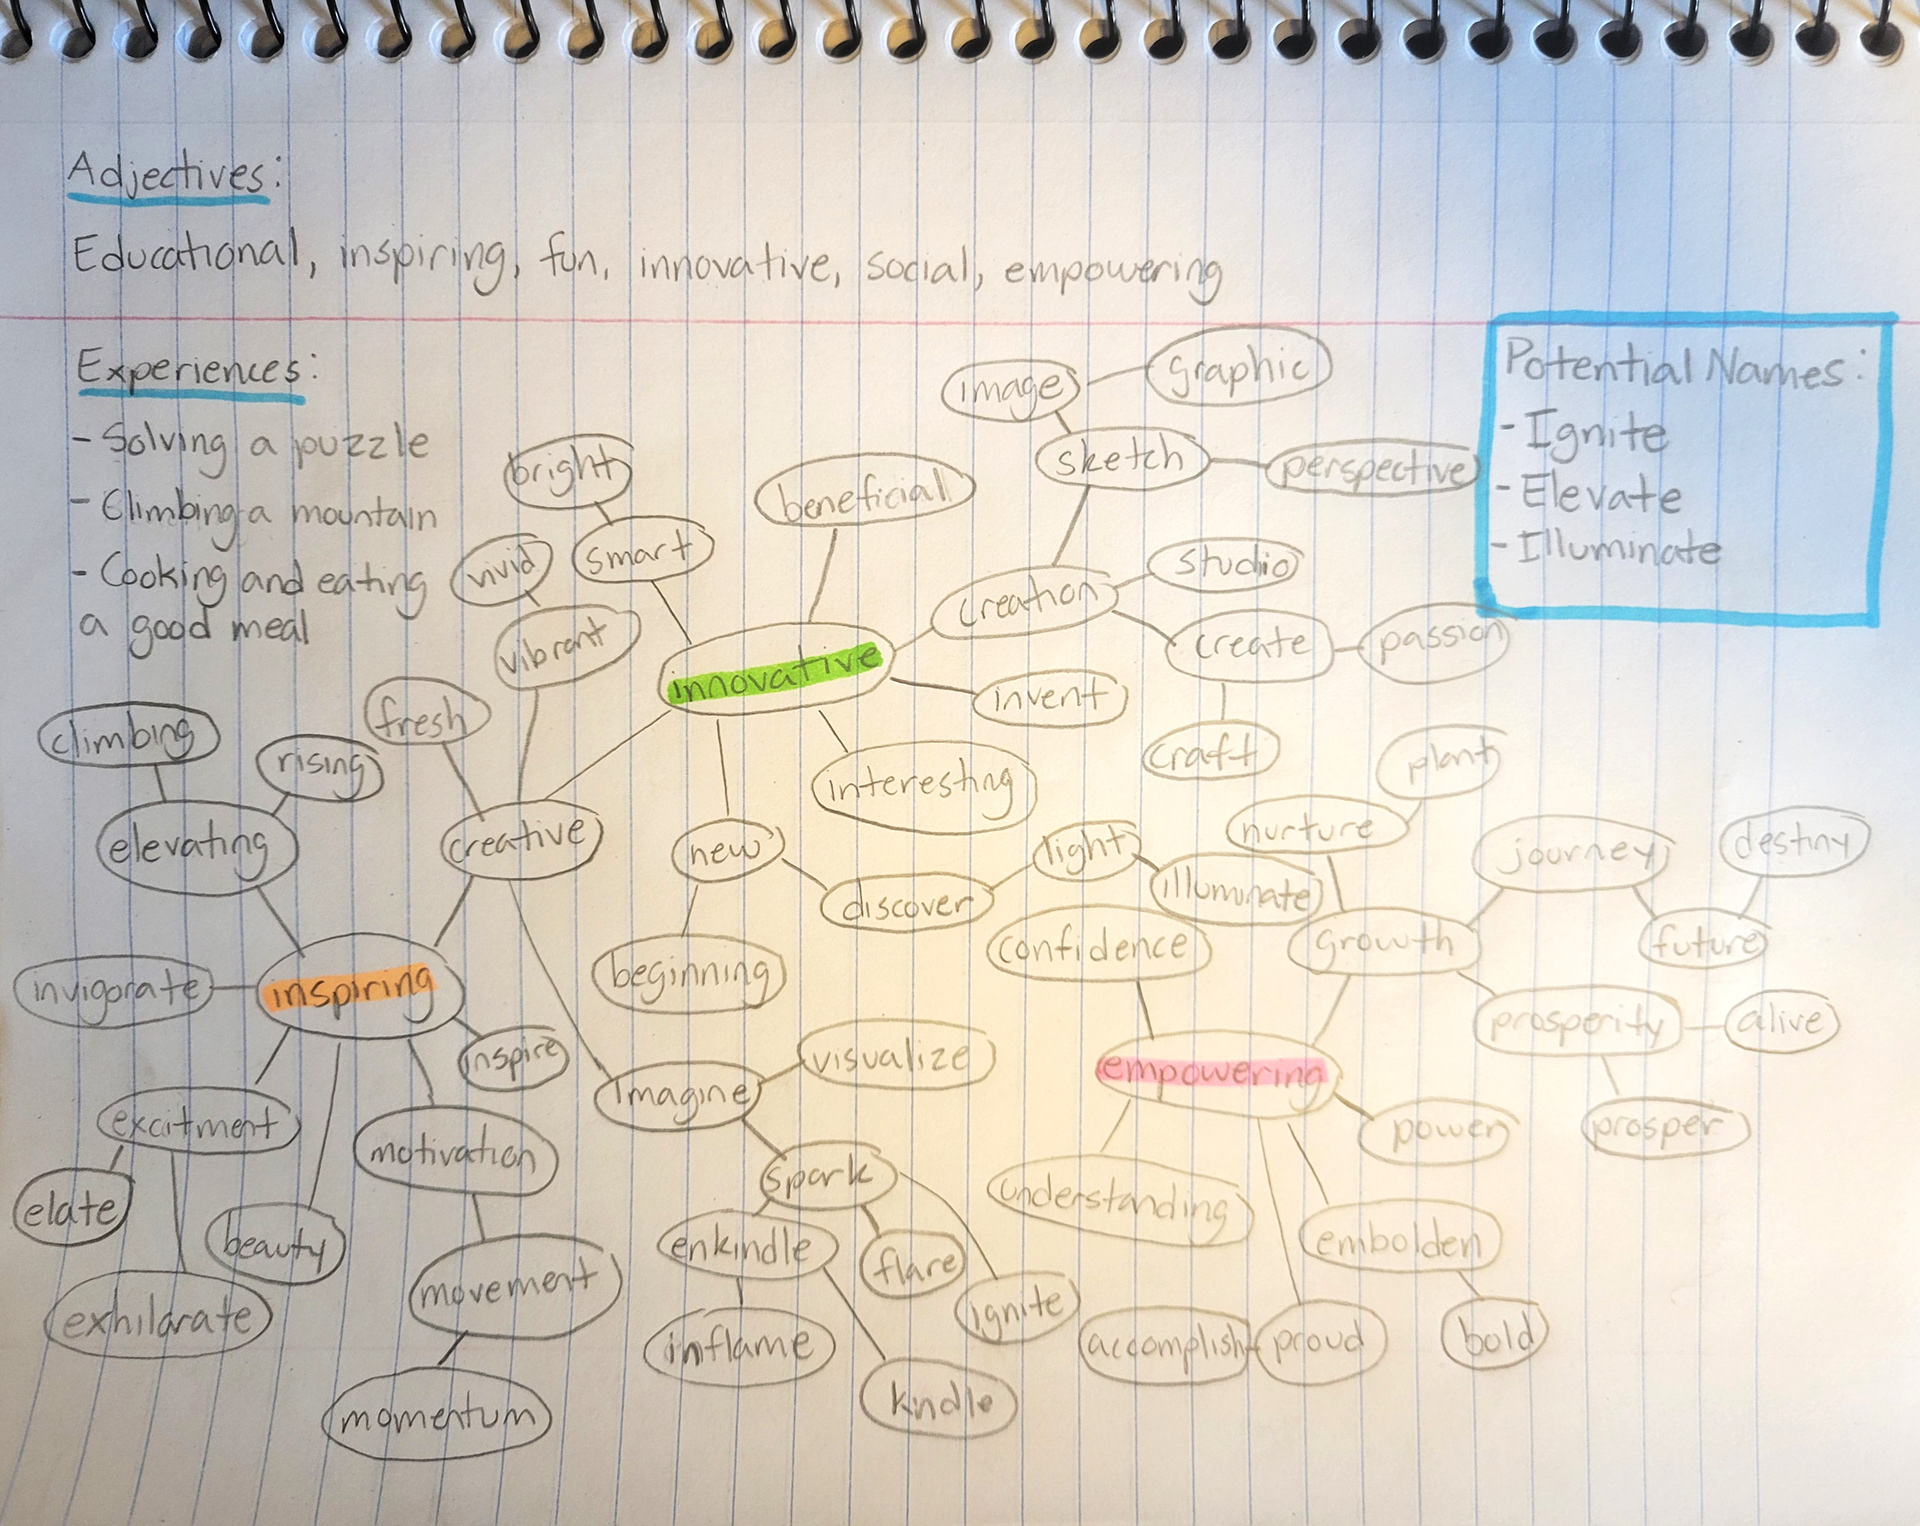 Adjectives:
Educational, inspiring, fun, innovative, social, empowering
Experiences:
- Solving a puzzle
- Climbing a mountain
- Cooking and eating
a good meal
Potential Names:
- Ignite
- Elevate
- Illuminate
image
graphic
sketch
perspective
bright
beneficial
smart
vivid
studio
creation
vibrant
create
passion
innovative
invent
fresh
craft
climbing
rising
interesting
plant
elevating
creative
new
light
nurture
journey
destiny
discover
illuminate
confidence
growth
future
invigorate
inspiring
beginning
prosperity
alive
inspire
imagine
visualize
empowering
excitment
motivation
power
prosper
spark
elate
beauty
enkindle
flare
understanding
embolden
movement
exhilarate
inflame
ignite
accomplish
proud
bold
momentum
kindle